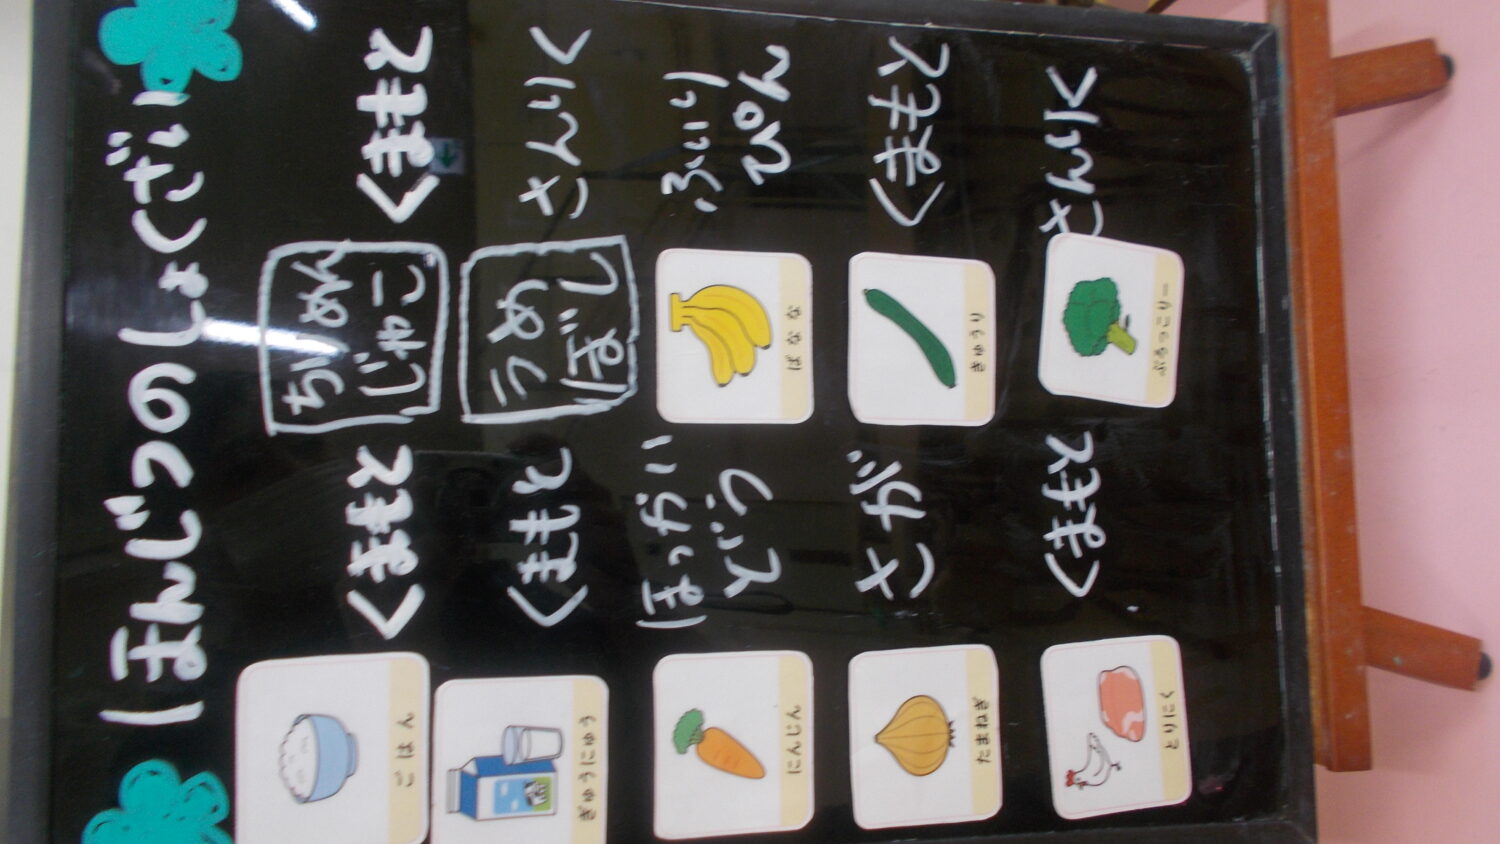 ほんじつのしょくざい
ごはん
くまもと
ちりめん
じゃこ
くまもと
ぎゅうにゅう
くまもと
うめ
ぼし
さんりく
にんじん
ほっかい
どう
ばなな
ふぃり
ぴん
たまねぎ
さが
きゅうり
くまもと
とりにく
くまもと
ぶろっこりー
さんりく